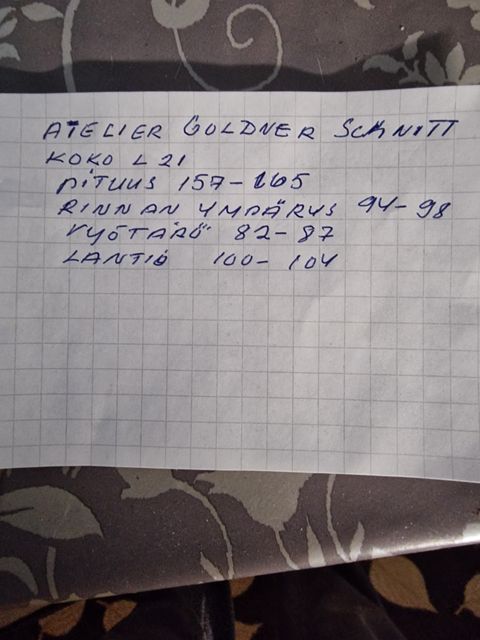 ATELIER GOLDNER SCHNITT
KOKO L 21
PITUUS 157-165
RINNAN YMPÄRYS 94-98
VYÖTÄRÖ 82-87
LANTIO 100-104